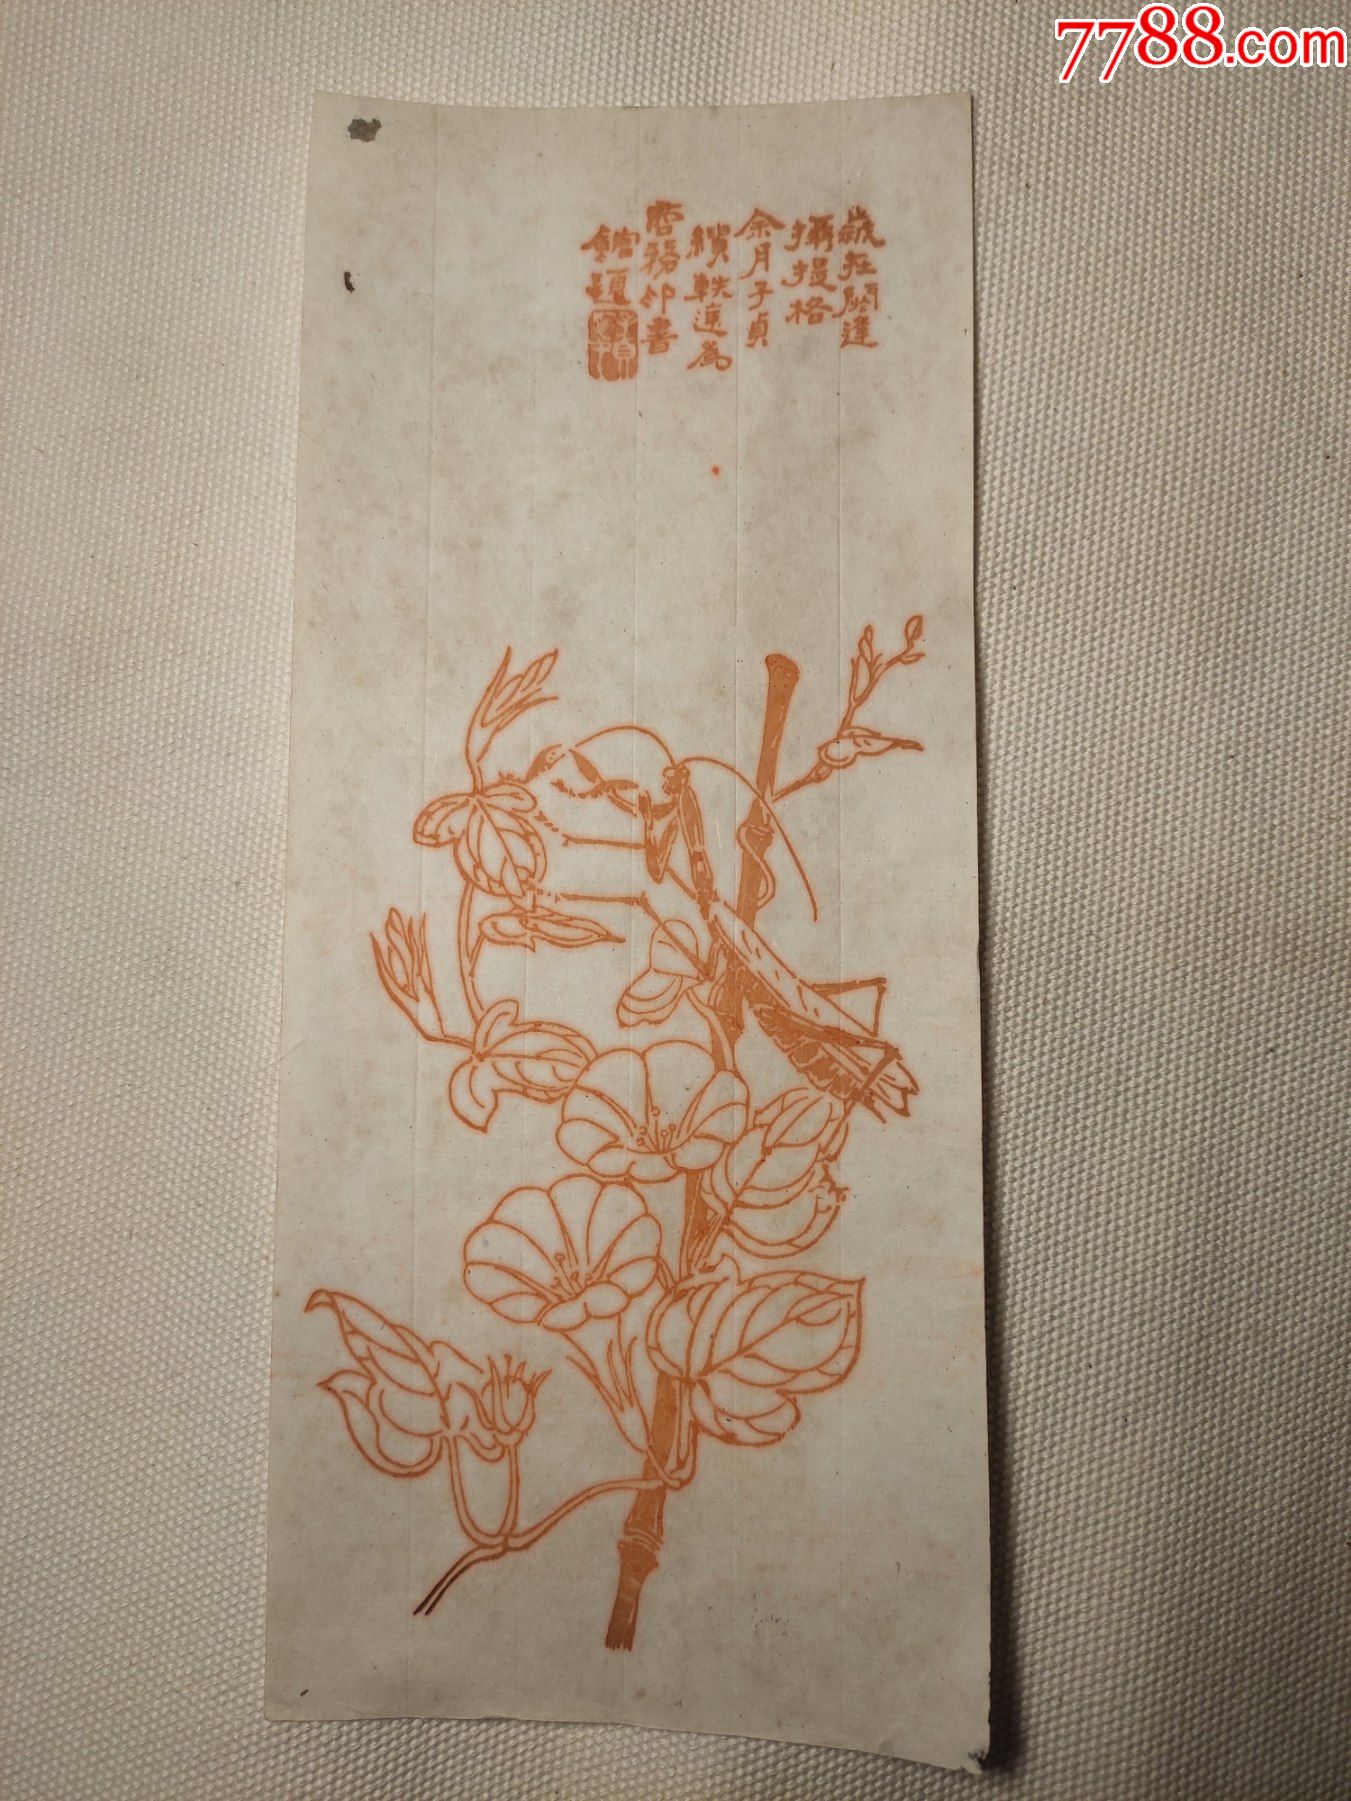 7788.com
歲在閼逢
攝提格
余月子貞
繢軼遠為
商務印書
館題